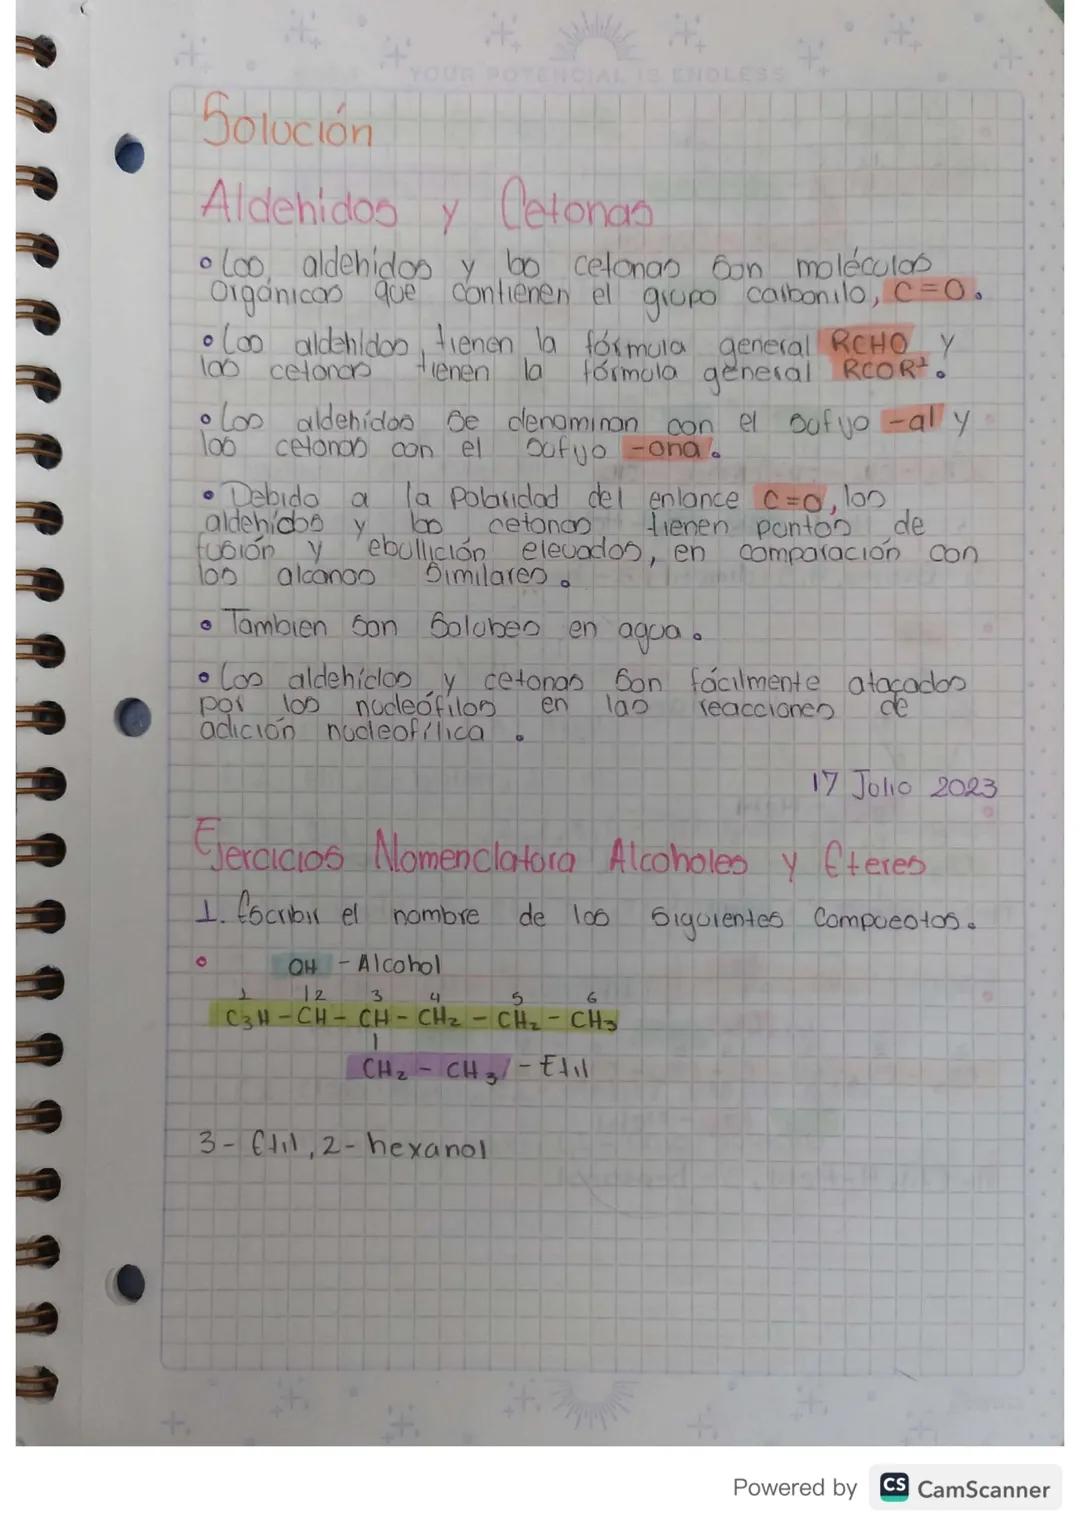 YOUR POTENCIAL IS ENDLESS
Solución
Aldehidos y Cetonas
• Los aldehidos y las cetonas son moléculas
Orgánicas que contienen el grupo carbonilo, C=O.
• Los aldehidos tienen la fórmula general RCHO y
las cetonas tienen la fórmula general RCOR¹.
• Los aldehidos se denominan con el sufijo -al y
las cetonas con el sufijo -ona.
• Debido a la Polaridad del enlance C=O, los
aldehidos y las cetonas tienen puntos de
fusión y ebullición elevados, en comparación con
los alcanos Similares.
• Tambien son Solubes en agua.
• Los aldehidos y cetonas Son fácilmente atacados
por los nucleófilos en las reacciones de
adición nucleofílica.
17 Julio 2023
Ejercicios Nomenclatura Alcoholes y Eteres
1. Escribir el nombre de los Siguientes Compuestos.
• OH - Alcohol
1 |2 3 4 5 6
C3H - CH - CH - CH2 - CH2 - CH3
|
CH2 - CH3 - Etil
3- Etil, 2- hexanol
Powered by CS CamScanner